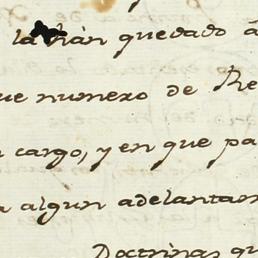 la han quedado á
ue numero de Re
cargo, y en que pa
a algun adelantam
Doctrinas qu